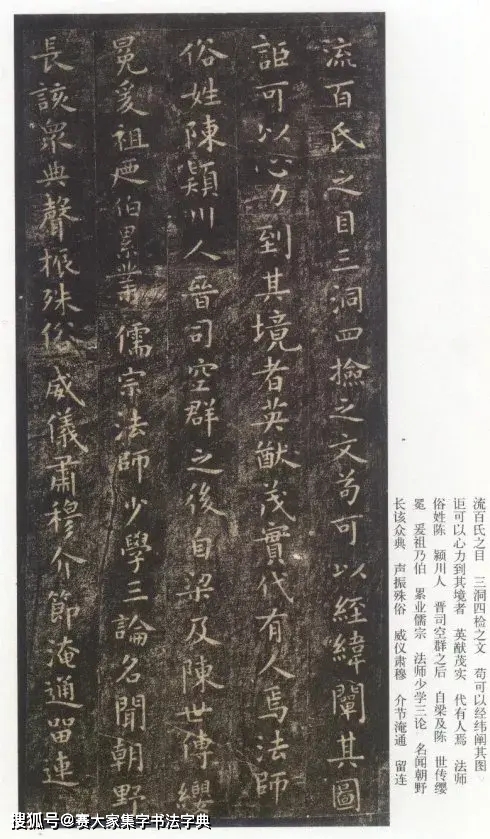 流百氏之目三洞四撿之文苟可以經緯闡其圖
詎可以心力到其境者英猷茂實代有人焉法師
俗姓陳潁川人晉司空群之後自梁及陳世傳纓
冕爰祖迺伯累業儒宗法師少學三論名聞朝野
長該衆典聲振殊俗威儀肅穆介節淹通留連
流百氏之目 三洞四检之文 苟可以经纬阐其图
讵可以心力到其境者 英猷茂实 代有人焉 法师
俗姓陈 颍川人 晋司空群之后 自梁及陈 世传缨
冕 爰祖乃伯 累业儒宗 法师少学三论 名闻朝野
长该众典 声振殊俗 威仪肃穆 介节淹通 留连
搜狐号@赛大家集字书法字典